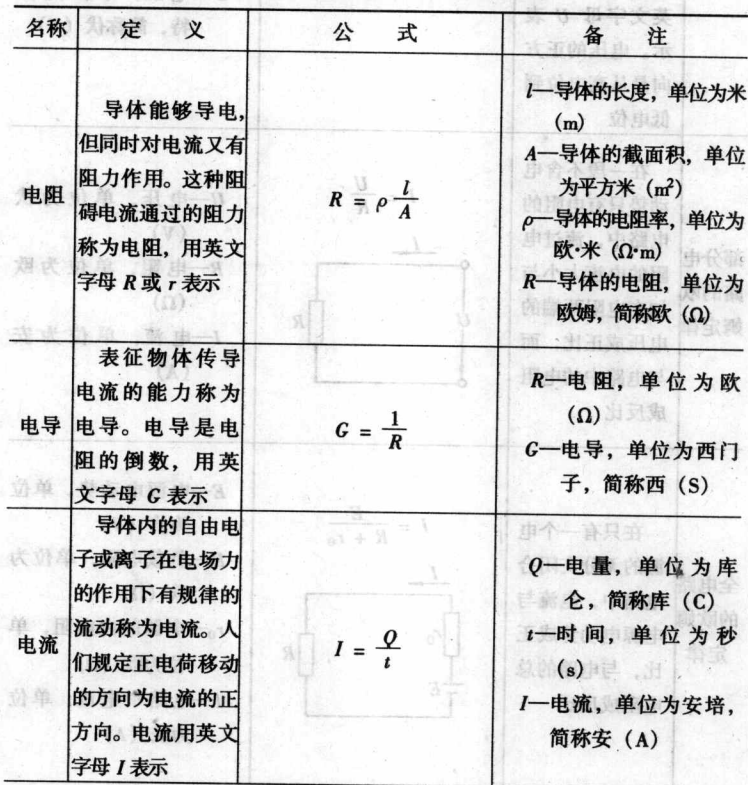 名称 定 义 公 式 备 注
电阻
导体能够导电,
但同时对电流又有
阻力作用。这种阻
碍电流通过的阻力
称为电阻，用英文
字母 R 或 r 表示
R = ρ l/A
l—导体的长度，单位为米
(m)
A—导体的截面积，单位
为平方米 (m²)
ρ—导体的电阻率，单位为
欧·米 (Ω·m)
R—导体的电阻，单位为
欧姆，简称欧 (Ω)
电导
表征物体传导
电流的能力称为
电导。电导是电
阻的倒数，用英
文字母 G 表示
G = 1/R
R—电阻，单位为欧
(Ω)
G—电导，单位为西门
子，简称西 (S)
电流
导体内的自由电
子或离子在电场力
的作用下有规律的
流动称为电流。人
们规定正电荷移动
的方向为电流的正
方向。电流用英文
字母 I 表示
I = Q/t
Q—电量，单位为库
仑，简称库 (C)
t—时间，单位为秒
(s)
I—电流，单位为安培，
简称安 (A)